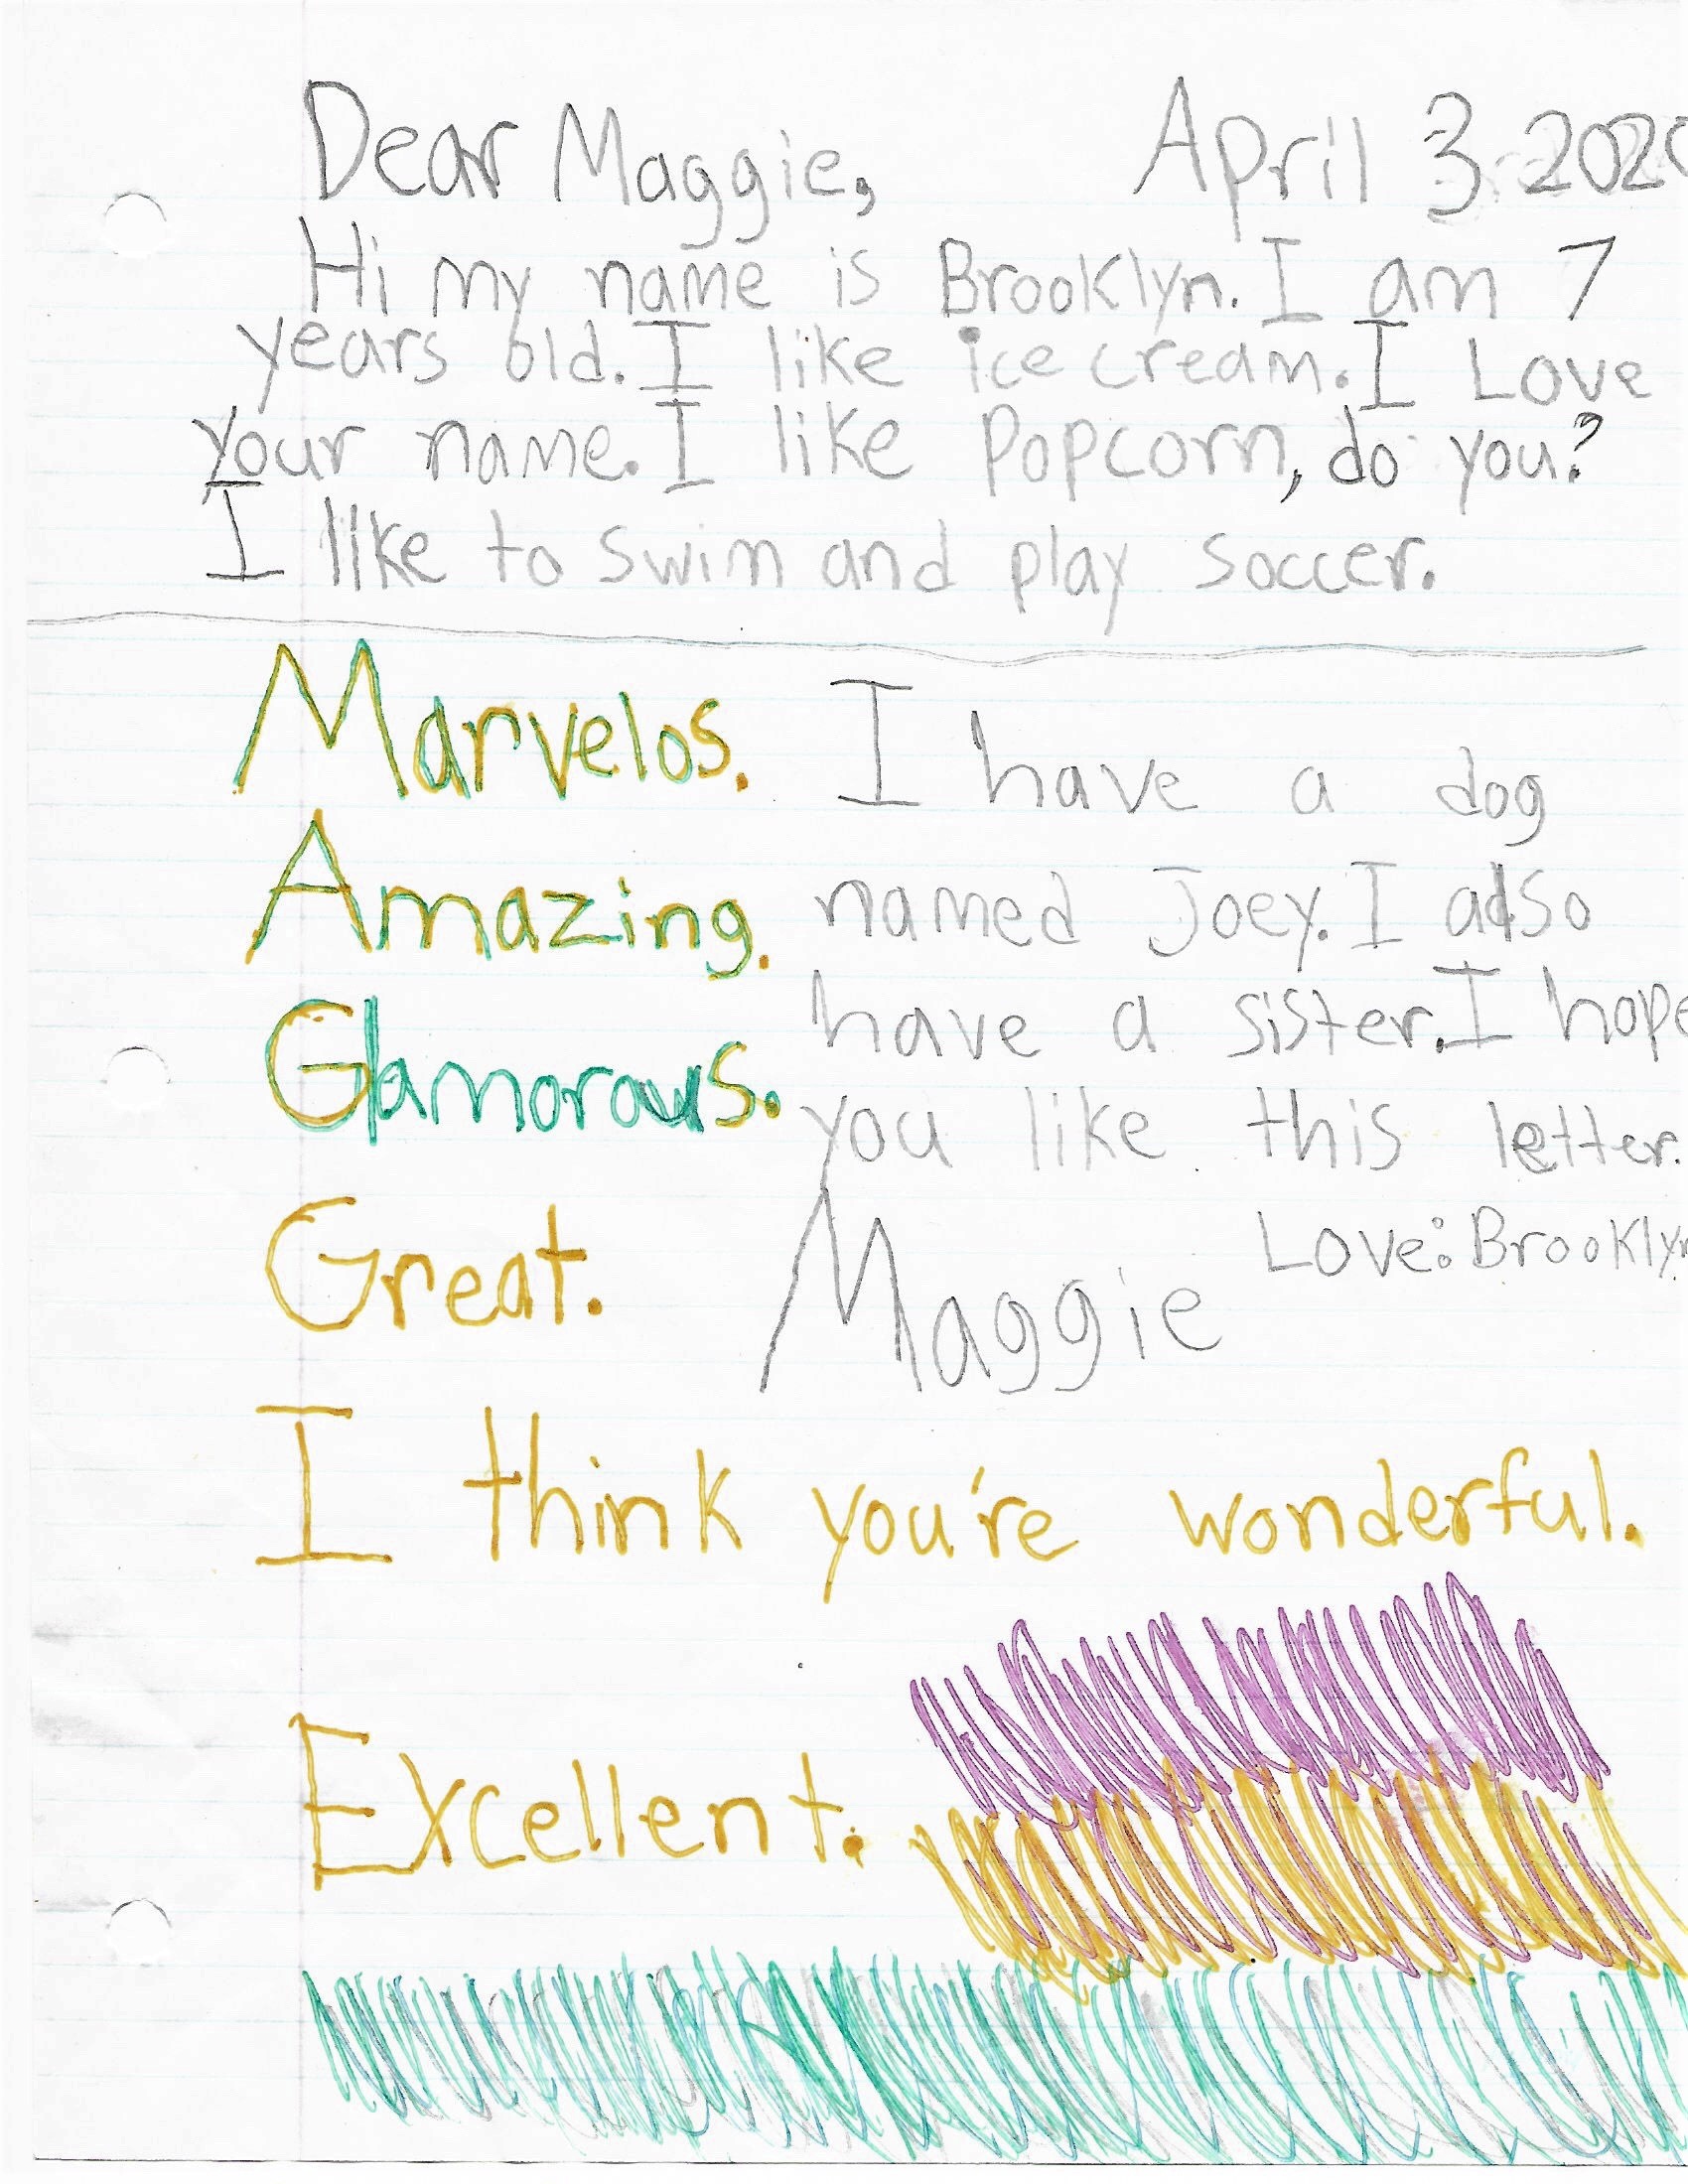 Dear Maggie, April 3 2020
Hi my name is Brooklyn. I am 7
years old. I like ice cream. I Love
your name. I like Popcorn, do you?
I like to swim and play soccer.
Marvelos. I have a dog
Amazing. named Joey. I also
Glamorous. have a sister. I hope
you like this letter.
Great. Love: Brooklyn
Maggie
I think you're wonderful.
Excellent.